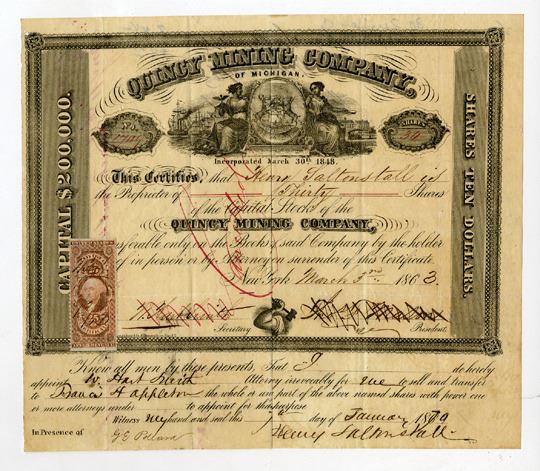 QUINCY MINING COMPANY,
OF MICHIGAN.
No.
SHARES
CAPITAL $200.000.
SHARES TEN DOLLARS.
Incorporated March 30th 1848.
This Certifies, that Henry Saltonstall is
the Proprietor of Thirty Shares
of the Capital Stock of the
QUINCY MINING COMPANY,
transferable only on the Books of said Company by the holder
in person or by Attorney on surrender of this Certificate.
New York March 3rd 1863.
Secretary
President.
Know all men by these presents, That I do hereby
appoint Attorney irrevocably for me to sell and transfer
to Francis H Appleton the whole or any part of the above named shares with power one
or more attorneys under to appoint for that purpose
Witness my hand and seal this day of January 1870
Henry Saltonstall
In Presence of